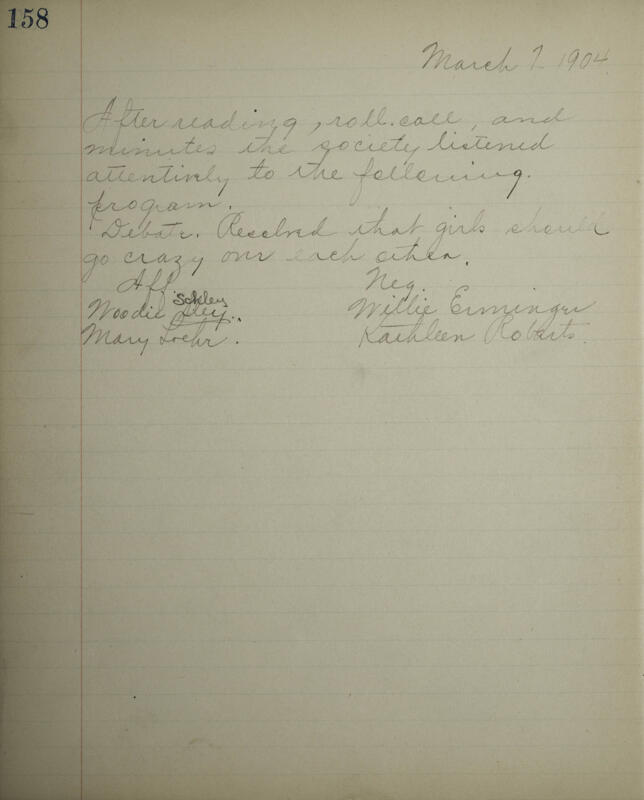 158
March 7 1904
After reading, roll. call, and
minutes the society listened
attentively to the following.
program.
Debate. Resolved that girls should
go crazy over each other.
Aff. Neg.
Woodie Sokley Willie Erminger
Mary Loehr. Kathleen Robarts.